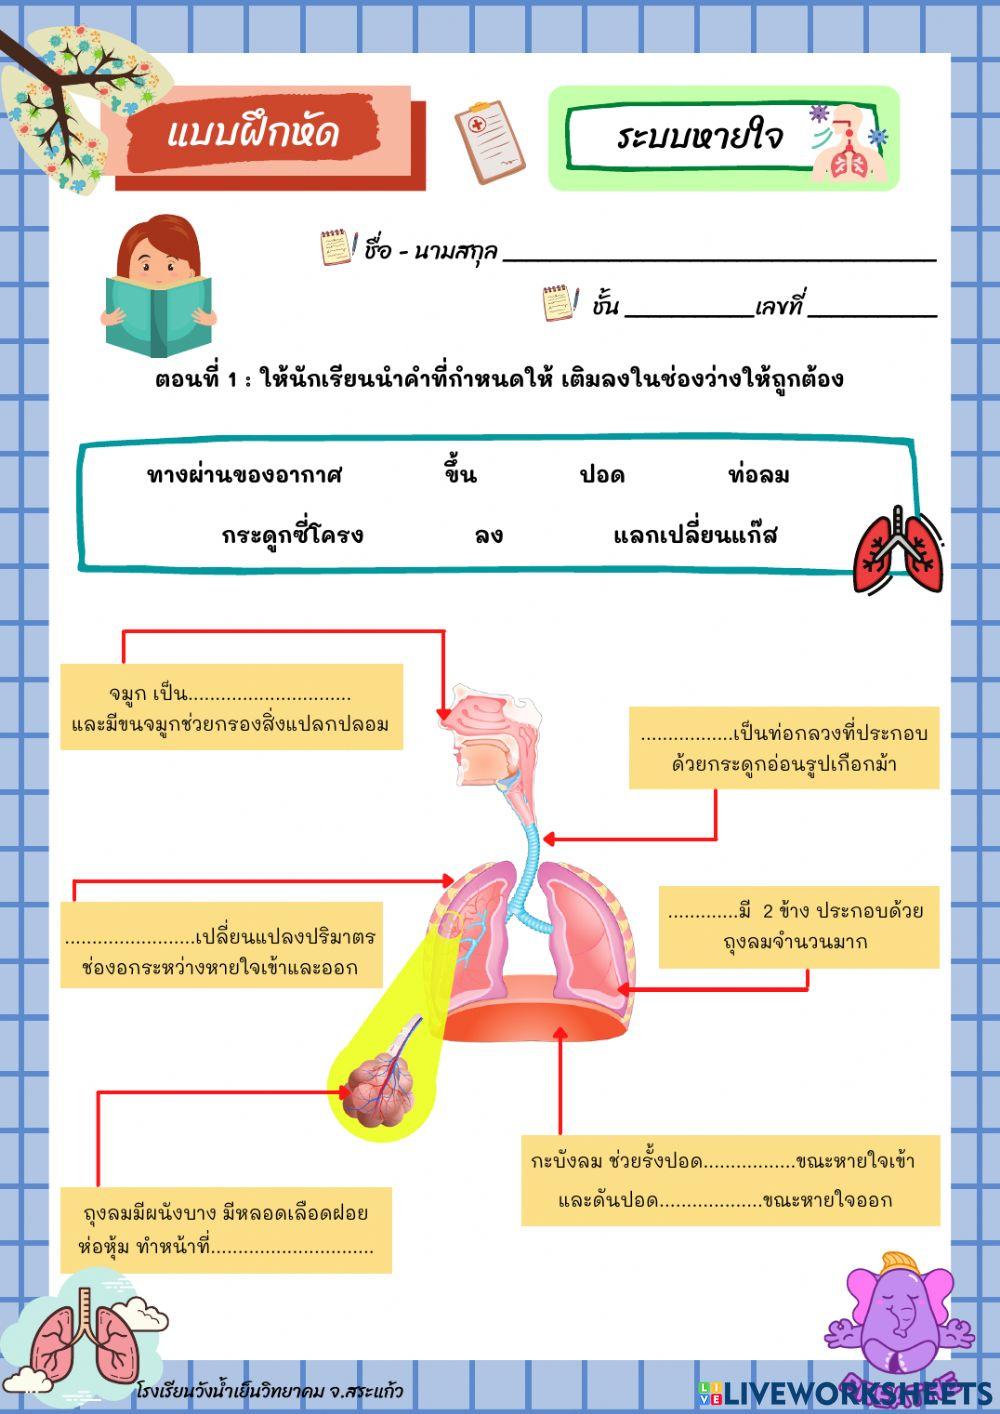 แบบฝึกหัด
ระบบหายใจ
ชื่อ - นามสกุล ________________________________
ชั้น __________เลขที่ __________
ตอนที่ 1 : ให้นักเรียนนำคำที่กำหนดให้ เติมลงในช่องว่างให้ถูกต้อง
ทางผ่านของอากาศ ขึ้น ปอด ท่อลม
กระดูกซี่โครง ลง แลกเปลี่ยนแก๊ส
จมูก เป็น..............................
และมีขนจมูกช่วยกรองสิ่งแปลกปลอม
.................เป็นท่อกลวงที่ประกอบ
ด้วยกระดูกอ่อนรูปเกือกม้า
........................เปลี่ยนแปลงปริมาตร
ช่องอกระหว่างหายใจเข้าและออก
.............มี 2 ข้าง ประกอบด้วย
ถุงลมจำนวนมาก
กะบังลม ช่วยรั้งปอด.................ขณะหายใจเข้า
และดันปอด...................ขณะหายใจออก
ถุงลมมีผนังบาง มีหลอดเลือดฝอย
ห่อหุ้ม ทำหน้าที่..............................
โรงเรียนวังน้ำเย็นวิทยาคม จ.สระแก้ว
LIVEWORKSHEETS